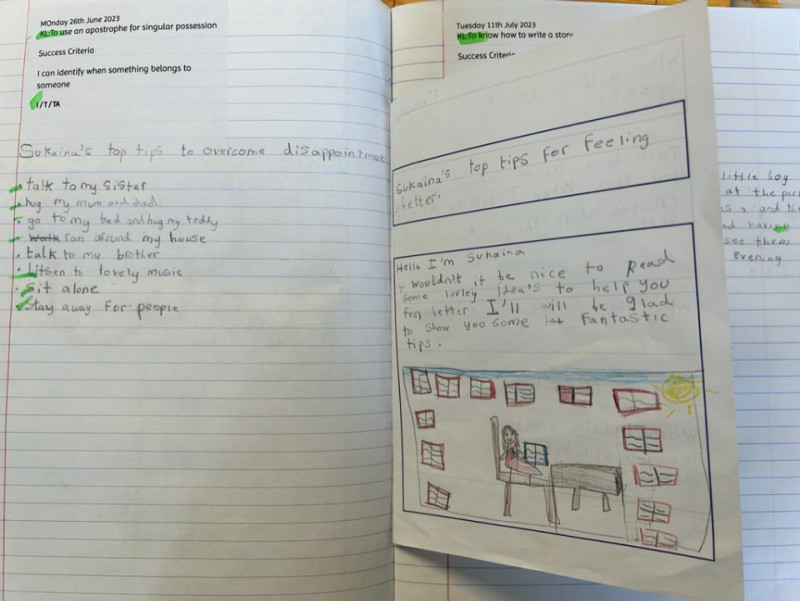 MOnday 26th June 2023
KL:To use an apostrophe for singular possession
Success Criteria
I can identify when something belongs to
someone
I/T/TA
Sukaina's top tips to overcome disappointment
talk to my sister
hug my mum and dad
go to my bed and hug my teddy
ran around my house
talk to my brother
Litsen to lovely music
Sit alone
Stay away for people
Tuesday 11th July 2023
KL:To know how to write a story
Success Criteria
Sukaina's top tips for feeling
better.
Hello I'm Sukaina
wouldn't it be nice to Read
some lovley Idea's to help you
feel better I'll will be glad
to show you some fantastic
tips.
little
at the
and
see them
evening